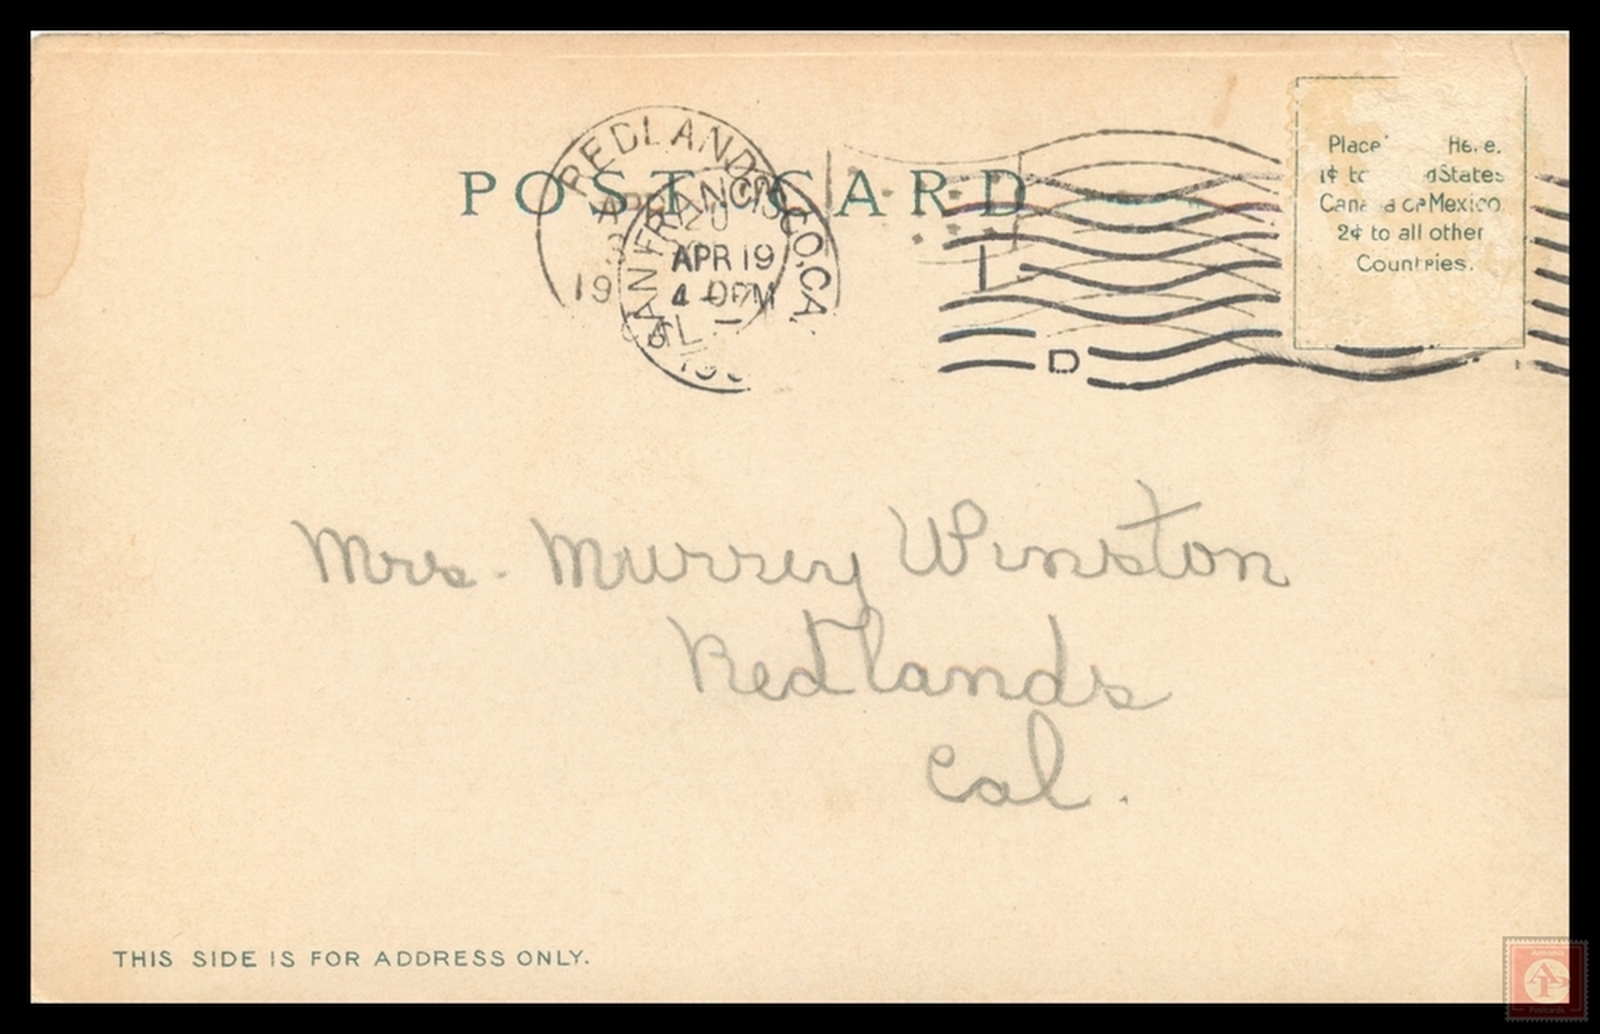 POST CARD
REDLANDS
APR 20
19
CAL
SAN FRANCISCO, CA
APR 19
4 PM
D
Place Here.
1¢ to States
Canada or Mexico
2¢ to all other
Countries.
Mrs. Murrey Winston
Redlands
Cal.
THIS SIDE IS FOR ADDRESS ONLY.
AP
Postcards